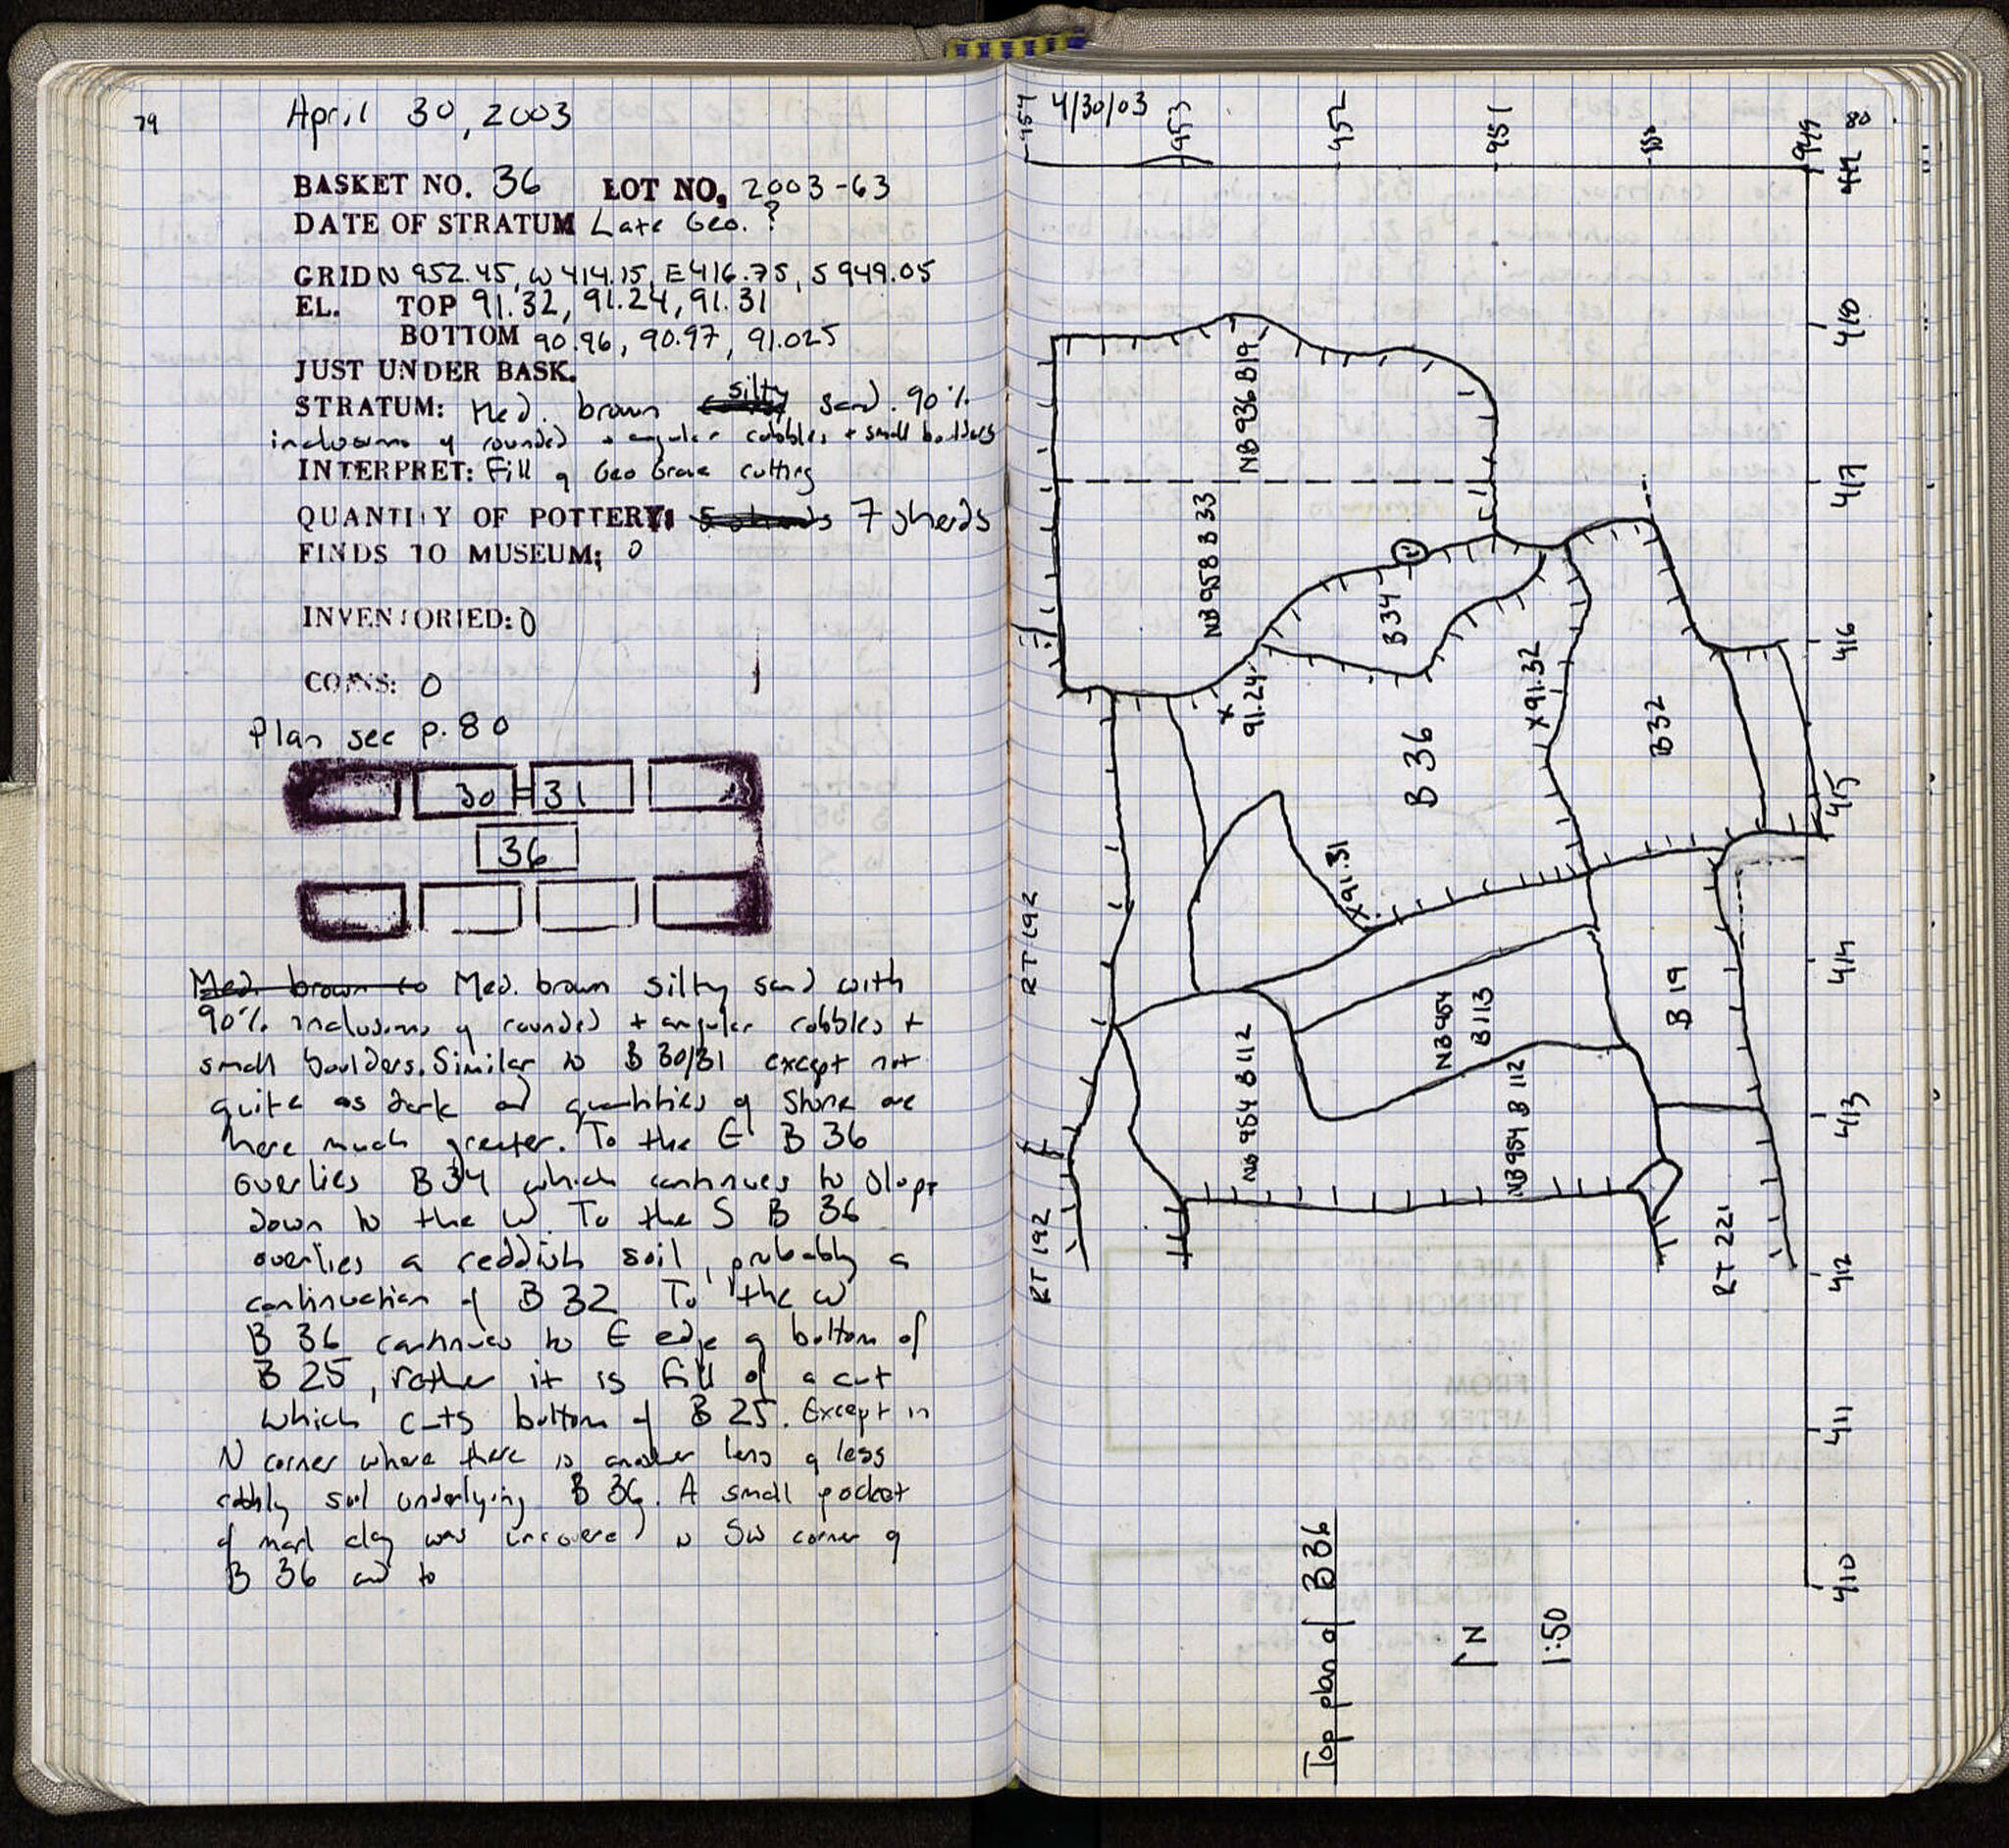 79
April 30, 2003
BASKET NO. 36 LOT NO. 2003-63
DATE OF STRATUM Late Geo. ?
GRID N 952.45, W 414.15, E 416.75, S 949.05
EL. TOP 91.32, 91.24, 91.31
BOTTOM 90.96, 90.97, 91.025
JUST UNDER BASK.
STRATUM: Med. brown silty sand. 90%
inclusions of rounded + angular cobbles + small boulders
INTERPRET: Fill of Geo Grave cutting
QUANTITY OF POTTERY: 5 sherds 7 sherds
FINDS TO MUSEUM: 0
INVENTORIED: 0
COINS: 0
Plan see p. 80
30 = 31
36
Med. brown to Med. brown silty sand with
90% inclusions of rounded + angular cobbles +
small boulders. Similar to B 30/31 except not
quite as dark and quantities of stone are
here much greater. To the E B 36
overlies B34 which continues to slope
down to the W. To the S B 36
overlies a reddish soil, probably a
continuation of B 32. To the W
B 36 continues to E edge of bottom of
B 25, rather it is fill of a cut
which cuts bottom of B 25. Except in
N corner where there is another lens of less
cobbly soil underlying B 36. A small pocket
of marl clay was uncovered in SW corner of
B 36 and to
4/30/03
80
954
953
952
951
950
949
411
418
417
416
415
414
413
412
411
410
NB 936 B19
NB 958 B 33
B34
91.24
X 91.32
B 36
B32
X 91.31
RT 192
NB 954
B 113
B 19
NB 954 B 112
NB 954 B 112
RT 192
RT 221
Top plan of B36
N
1:50